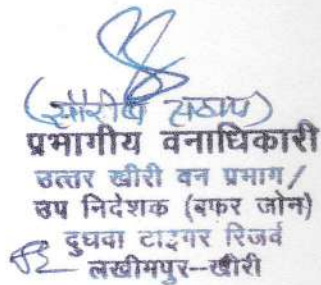 (सौरीष सहाय)
प्रभागीय वनाधिकारी
उत्तर खीरी वन प्रभाग/
उप निदेशक (बफर जोन)
दुधवा टाइगर रिजर्व
लखीमपुर--खीरी